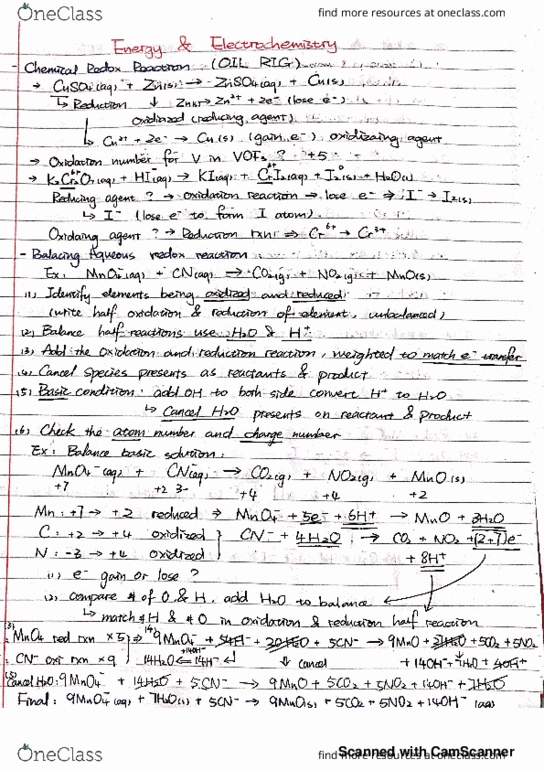 OneClass
find more resources at oneclass.com
Energy & Electrochemistry
- Chemical Redox Reaction (OIL RIG)
→ CuSO4(aq) + Zn(s) → ZnSO4(aq) + Cu(s)
↳ Reduction ↓ Zn(s) → Zn²⁺ + 2e⁻ (lose e⁻)
Oxidized (reducing agent)
↳ Cu²⁺ + 2e⁻ → Cu(s) (gain e⁻) oxidizaing agent
→ Oxidation number for V in VOF3 ? +5
→ K2Cr2O7(aq) + HI(aq) → KI(aq) + CrI3(aq) + I2(s) + H2O(l)
Reducing agent ? → oxidation reaction → lose e⁻ → I⁻ → I2(s)
↳ I⁻ (lose e⁻ to form I atom)
Oxidaing agent ? → Reduction rxn: ⇒ Cr⁶⁺ → Cr³⁺
- Balacing Aqueous redox reaction
Ex: MnO4⁻(aq) + CN⁻(aq) → CO2(g) + NO2(g) + MnO(s)
(1) Identify elements being oxidized and reduced
(write half oxidation & reduction of element, unbalanced)
(2) Balance half reactions use H2O & H⁺
(3) Add the oxidation and reduction reaction, weighted to match e⁻ transfer
(4) Cancel species presents as reactants & product
(5) Basic condition: add OH to both side convert H⁺ to H2O
↳ Cancel H2O presents on reactant & product
(6) Check the atom number and charge number
Ex: Balance basic solution:
MnO4⁻(aq) + CN⁻(aq) → CO2(g) + NO2(g) + MnO(s)
+7 +2 3- +4 +4 +2
Mn: +7 → +2 reduced ⇒ MnO4⁻ + 5e⁻ + 6H⁺ → MnO + 3H2O
C: +2 → +4 oxidized } CN⁻ + 4H2O → CO2 + NO2 + (2+7)e⁻
N: -3 → +4 oxidized + 8H⁺
(1) e⁻ gain or lose ?
(2) compare # of O & H, add H2O to balance
↳ match # H & # O in oxidation & reduction half reaction
(3) MnO4 red rxn ×9 9MnO4⁻ + 54H⁺ + 20H2O + 5CN⁻ → 9MnO + 27H2O + 5CO2 + 5NO2
CN⁻ oxi rxn × 14H2O ← 14H⁺ ↓ cancel + 14OH⁻ + 40H⁺
(5) Cancel H2O: 9MnO4⁻ + 14H2O + 5CN⁻ → 9MnO + 5CO2 + 5NO2 + 14OH⁻ + 7H2O
Final: 9MnO4⁻(aq) + 7H2O(l) + 5CN⁻ → 9MnO(s) + 5CO2 + 5NO2 + 14OH⁻(aq)
Scanned with CamScanner
OneClass
find more resources at oneclass.com